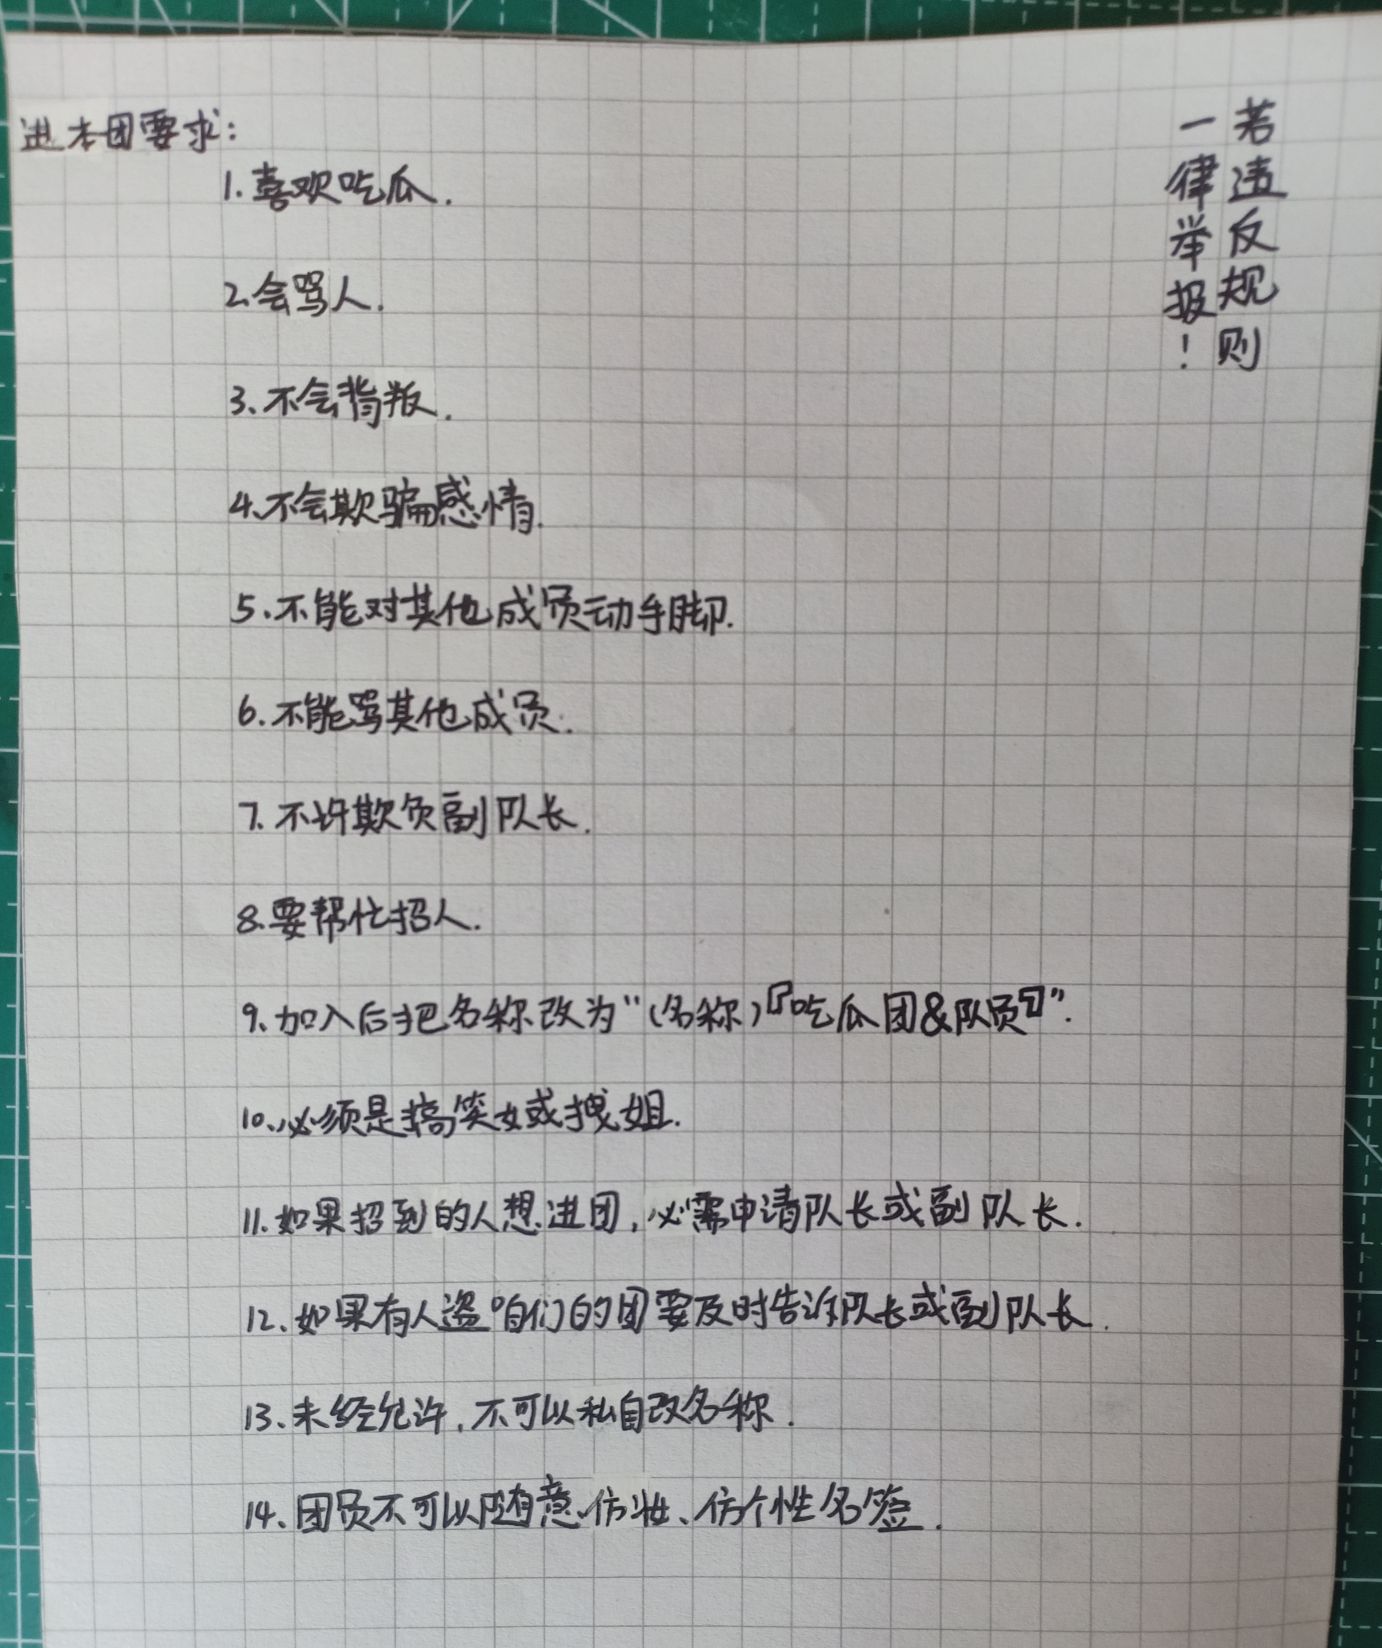 进本团要求:
1.喜欢吃瓜.
2.会骂人.
3、不会背叛.
4、不会欺骗感情.
5、不能对其他成员动手脚.
6、不能骂其他成员.
7、不许欺负副队长.
8、要帮忙招人.
9、加入后把名称改为“(名称)『吃瓜团&队员』”.
10、必须是搞笑女或拽姐.
11、如果招到的人想进团,必需申请队长或副队长.
12、如果有人盗咱们的团要及时告诉队长或副队长.
13、未经允许,不可以私自改名称.
14、团员不可以随意仿妆、仿个性名签.
若违反规则
一律举报!